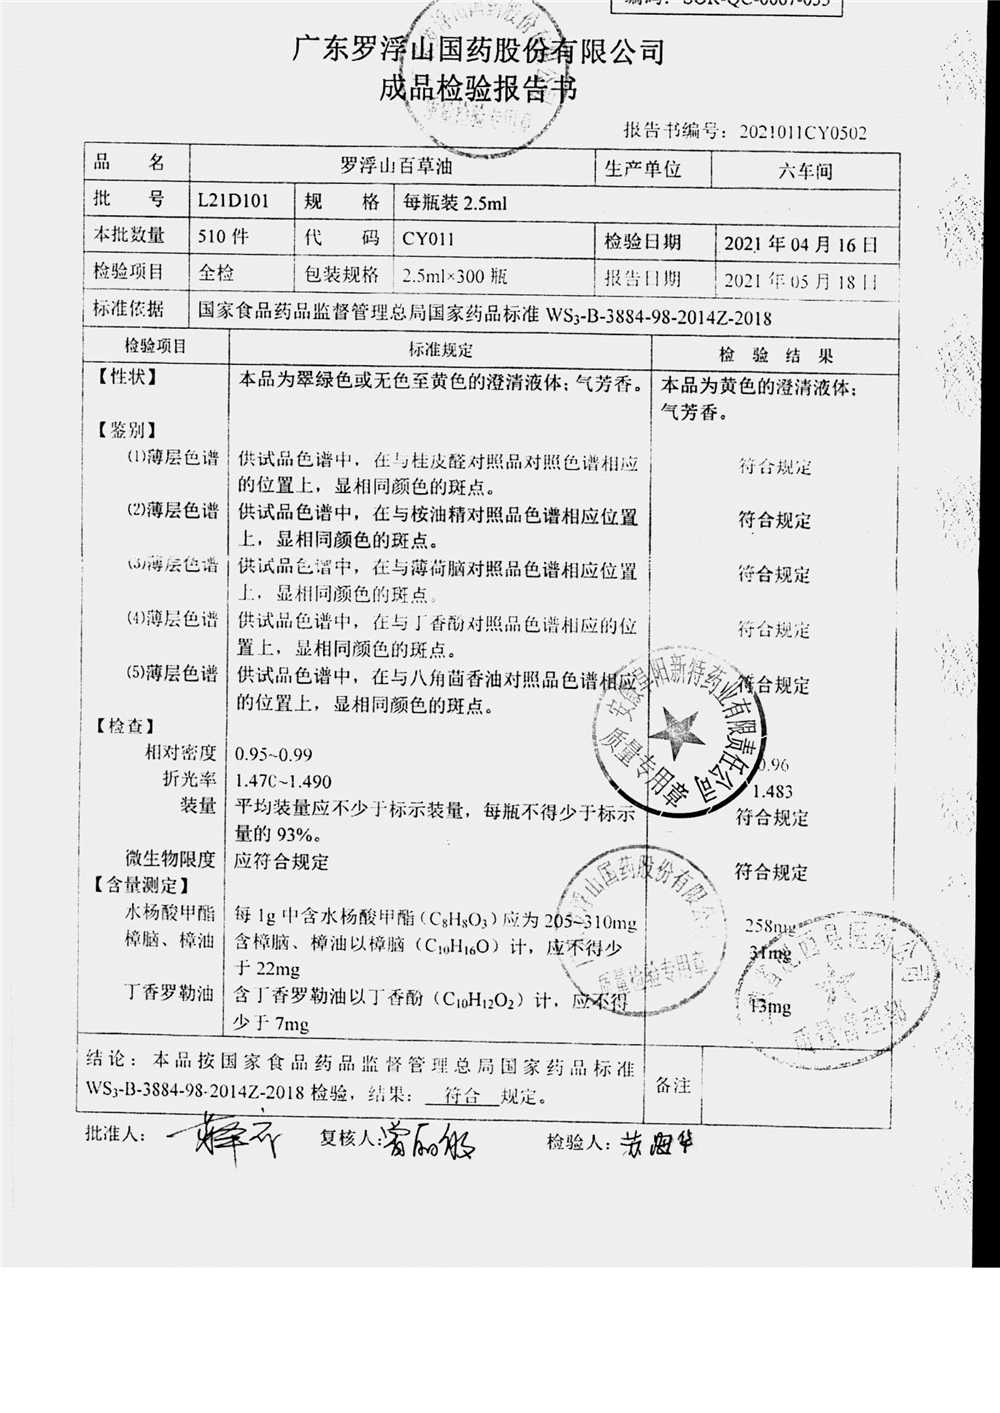 编码：SOR-QC-0067-035
广东罗浮山国药股份有限公司
成品检验报告书
报告书编号：2021011CY0502
品 名 罗浮山百草油 生产单位 六车间
批 号 L21D101 规 格 每瓶装 2.5ml
本批数量 510 件 代 码 CY011 检验日期 2021 年 04 月 16 日
检验项目 全检 包装规格 2.5ml×300 瓶 报告日期 2021 年 05 月 18 日
标准依据 国家食品药品监督管理总局国家药品标准 WS₃-B-3884-98-2014Z-2018
检验项目 标准规定 检 验 结 果
【性状】 本品为翠绿色或无色至黄色的澄清液体；气芳香。 本品为黄色的澄清液体；
气芳香。
【鉴别】
⑴薄层色谱 供试品色谱中，在与桂皮醛对照品对照色谱相应 符合规定
的位置上，显相同颜色的斑点。
⑵薄层色谱 供试品色谱中，在与桉油精对照品色谱相应位置 符合规定
上，显相同颜色的斑点。
⑶薄层色谱 供试品色谱中，在与薄荷脑对照品色谱相应位置 符合规定
上，显相同颜色的斑点。
⑷薄层色谱 供试品色谱中，在与丁香酚对照品色谱相应的位 符合规定
置上，显相同颜色的斑点。
⑸薄层色谱 供试品色谱中，在与八角茴香油对照品色谱相应 符合规定
的位置上，显相同颜色的斑点。
【检查】
相对密度 0.95~0.99 0.96
折光率 1.470~1.490 1.483
装量 平均装量应不少于标示装量，每瓶不得少于标示 符合规定
量的 93%。
微生物限度 应符合规定 符合规定
【含量测定】
水杨酸甲酯 每 1g 中含水杨酸甲酯（C₈H₈O₃）应为 205~310mg 258mg
樟脑、樟油 含樟脑、樟油以樟脑（C₁₀H₁₆O）计，应不得少 31mg
于 22mg
丁香罗勒油 含丁香罗勒油以丁香酚（C₁₀H₁₂O₂）计，应不得 13mg
少于 7mg
结论：本品按国家食品药品监督管理总局国家药品标准 备注
WS₃-B-3884-98-2014Z-2018 检验，结果： 符合 规定。
批准人： 复核人： 检验人：苏海华
安徽阜阳新特药业有限责任公司
质量专用章
罗浮山国药股份有限公
质量检验专用章